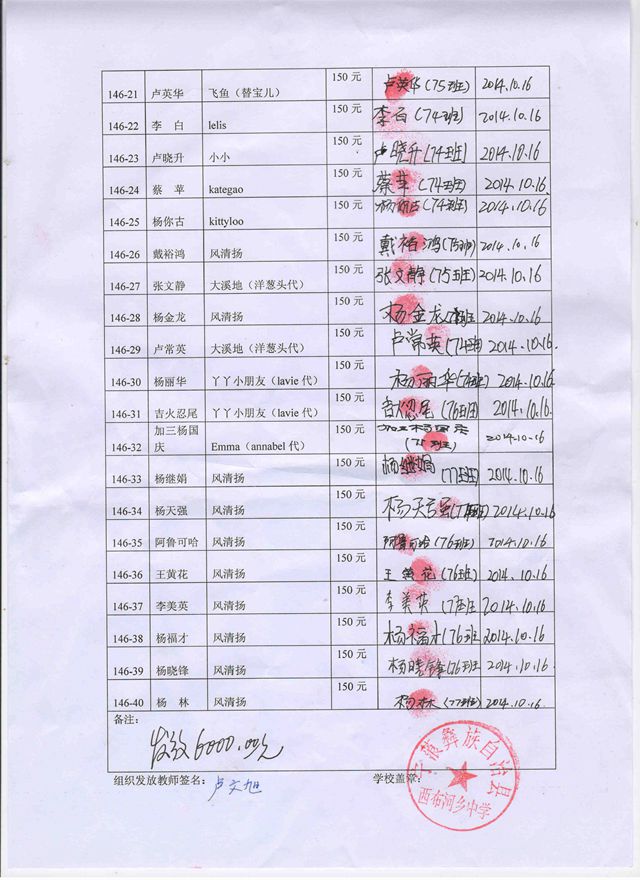 146-21 卢英华 飞鱼（替宝儿） 150 元 卢英华(75班) 2014.10.16
146-22 李 白 lelis 150 元 李白(74班) 2014.10.16
146-23 卢晓升 小小 150 元 卢晓升(74班) 2014.10.16
146-24 蔡 苹 kategao 150 元 蔡苹(74班) 2014.10.16
146-25 杨你古 kittyloo 150 元 杨你古(74班) 2014.10.16
146-26 戴裕鸿 风清扬 150 元 戴裕鸿(75班) 2014.10.16
146-27 张文静 大溪地（洋葱头代） 150 元 张文静(75班) 2014.10.16
146-28 杨金龙 风清扬 150 元 杨金龙 2014.10.16
146-29 卢常英 大溪地（洋葱头代） 150 元 卢常英(74班) 2014.10.16
146-30 杨丽华 丫丫小朋友（lavie 代） 150 元 杨丽华 2014.10.16
146-31 吉火忍尾 丫丫小朋友（lavie 代） 150 元 吉火忍尾(76班) 2014.10.16
146-32 加三杨国庆 Emma（annabel 代） 150 元 加三杨国庆 2014.10.16
(75班)
146-33 杨继娟 风清扬 150 元 杨继娟(77班) 2014.10.16
146-34 杨天强 风清扬 150 元 杨天强 2014.10.16
146-35 阿鲁可哈 风清扬 150 元 阿鲁可哈(76班) 2014.10.16
146-36 王黄花 风清扬 150 元 王黄花(76班) 2014.10.16
146-37 李美英 风清扬 150 元 李美英 2014.10.16
146-38 杨福才 风清扬 150 元 杨福才(76班 2014.10.16
146-39 杨晓锋 风清扬 150 元 杨晓锋(76班) 2014.10.16
146-40 杨 林 风清扬 150 元 杨林(77班) 2014.10.16
备注：
发放6000.00元
组织发放教师签名： 卢文旭 学校盖章：
彝族自治县
西布河乡中学